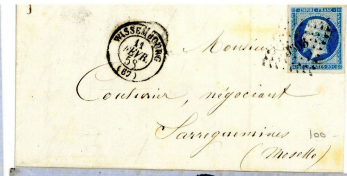 WISSEMBOURG
11
FEVR.
58
(67)
EMPIRE FRANC
Monsieur
Couturier, négociant
Sarreguemines
(Moselle)
100